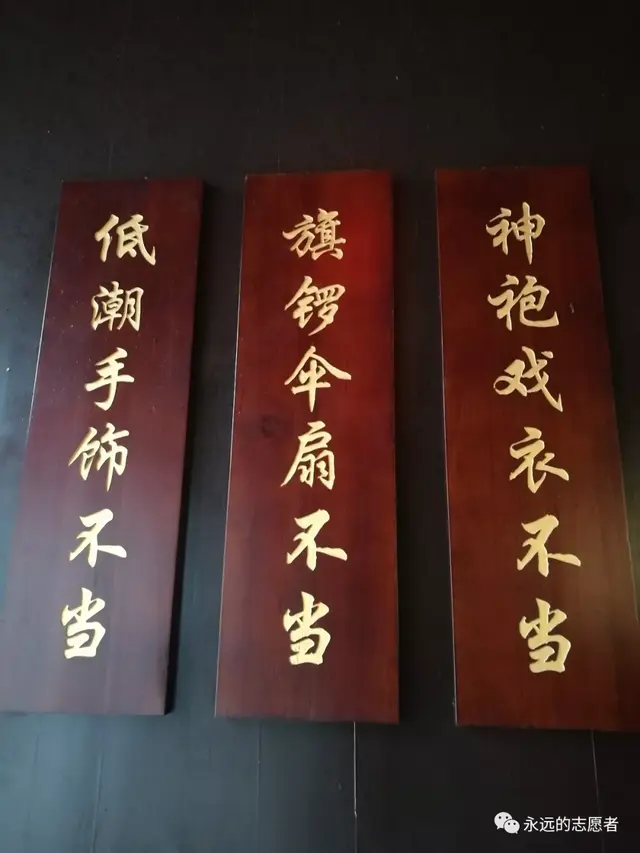 神袍戏衣不当
旗锣伞扇不当
低潮手饰不当
永远的志愿者